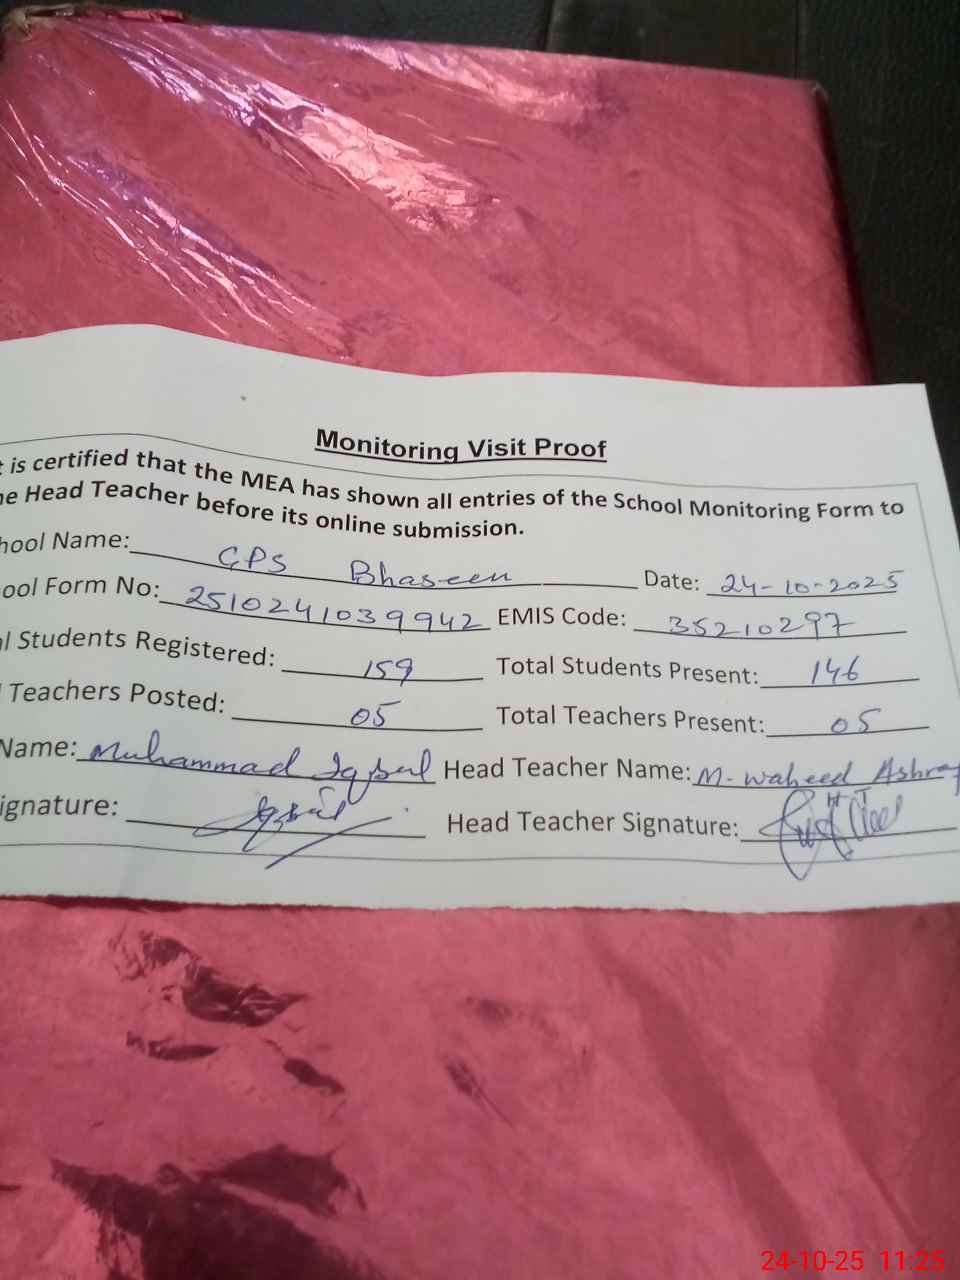 Monitoring Visit Proof
t is certified that the MEA has shown all entries of the School Monitoring Form to
he Head Teacher before its online submission.
hool Name: GPS Bhaseen Date: 24-10-2025
ool Form No: 2510241039942 EMIS Code: 35210297
al Students Registered: 159 Total Students Present: 146
l Teachers Posted: 05 Total Teachers Present: 05
Name: Muhammad Iqbal Head Teacher Name: M. Waheed Ashraf
ignature: Iqbal Head Teacher Signature:
24-10-25 11:25